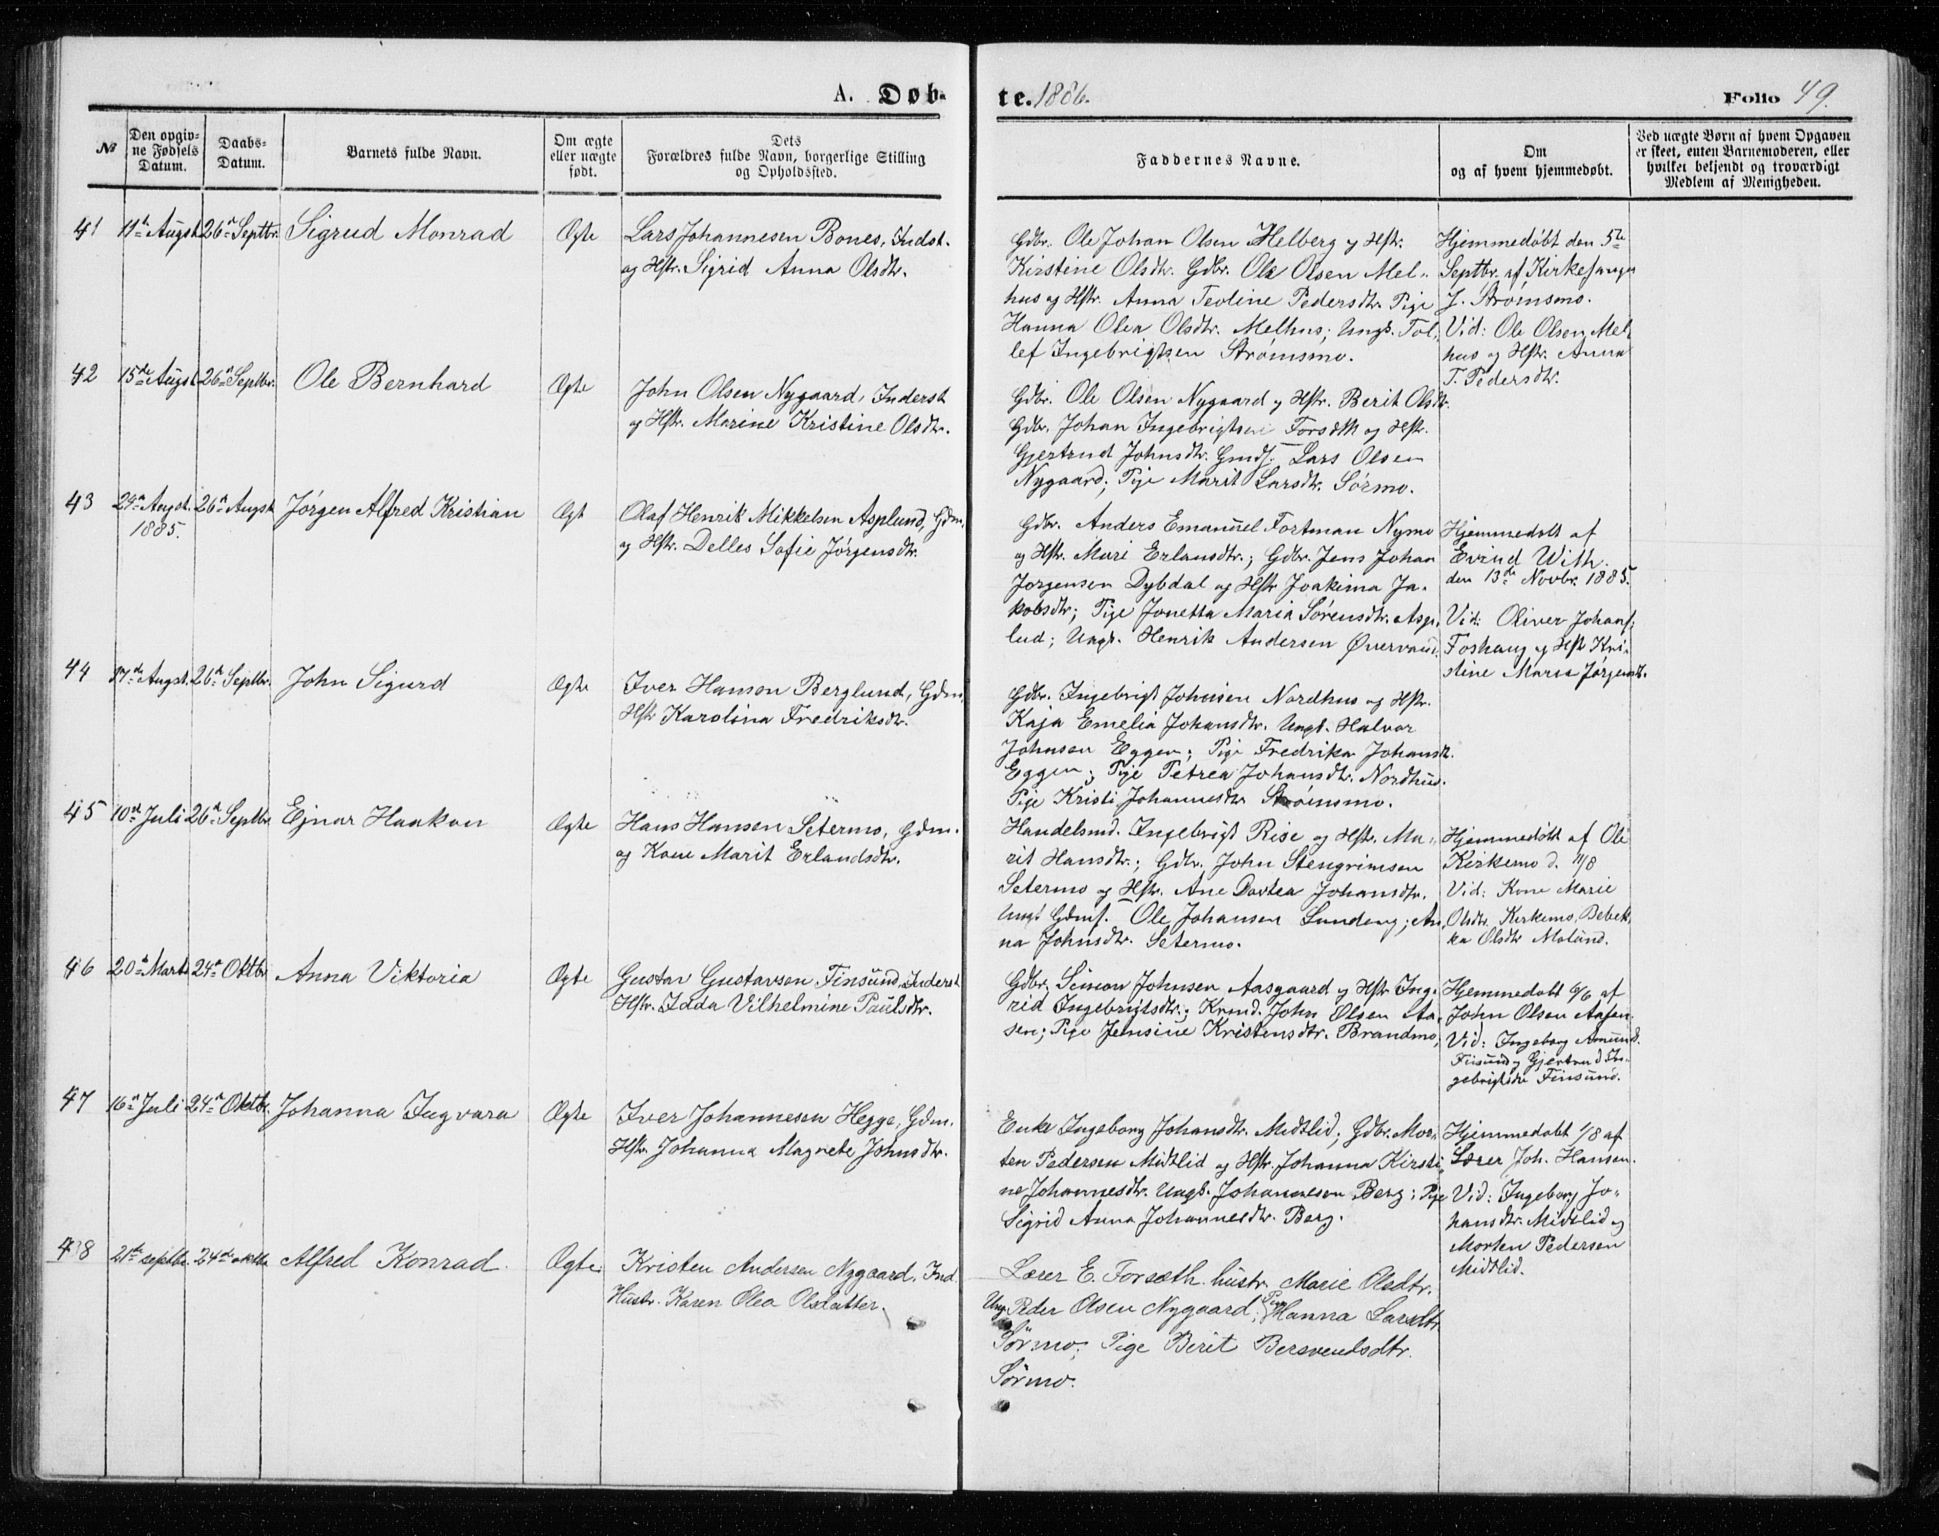 A. Døb-
te. 1886.
Folio 49.
No
Den opgiv-
ne Fødsels
Datum.
Daabs-
Datum.
Barnets fulde Navn.
Om ægte
eller uægte
født.
Dets
Forældres fulde Navn, borgerlige Stilling
og Opholdssted.
Faddernes Navne.
Om
og af hvem hjemmedøbt.
Ved uægte Børn af hvem Opgaven
er skeet, enten Barnemoderen, eller
hvilket bekjendt og troværdigt
Medlem af Menigheden.
41 11te Augst. 26de Septbr. Sigrud Monrad Ægte
Lars Johannesen Bones, Indst.
og Hstr. Sigrid Anna Olsdtr.
Gdbr. Ole Johan Olsen Helberg og Hstr.
Kirstine Olsdtr. Gdbr. Ole Olsen Mel-
hus og Hstr. Anna Teoline Pedersdtr. Pige
Hanna Olea Olsdtr. Melhus; Ungk. Tol-
lef Ingebrigtsen Strømsmo.
Hjemmedøbt den 5te
Septbr. af Kirkesanger
J. Strømsmo.
Vid: Ole Olsen Mel-
hus og Hstr. Anna
T. Pedersdtr.
42 15de Augst. 26de Septbr. Ole Bernhard Ægte
John Olsen Nygaard, Inderst
og Hstr. Marine Kristine Olsdtr.
Gdbr. Ole Olsen Nygaard og Hstr. Berit Olsdtr.
Gdbr. Johan Ingebrigtsen Forsæth og Hstr.
Gjertrud Johnsdtr. Gmdf. Lars Olsen
Nygaard; Pige Marit Larsdtr. Sørmo.
43 24de Augst. 26de Augst. Jørgen Alfred Kristian Ægt
1885.
Olaf Henrik Mikkelsen Asplund, Gdm.
og Hstr. Delles Sofie Jørgensdtr.
Gdbr. Anders Emanuel Fortman Nymo
og Hstr. Mari Erlansdtr.; Gdbr. Jens Johan
Jørgensen Dybdal og Hstr Joakima Ja-
kobsdtr; Pige Jonetta Maria Sørensdtr. Asp-
lud; Ungk. Henrik Andersen Øvervand.
Hjemmedøbt af
Evind With.
den 13de Novbr. 1885.
Vid: Oliver Johans.
Foshaug og Hstr Kri-
stine Maria Jørgensdtr.
44 17de Augst. 26de Septbr. John Sigurd Ægte
Iver Hanson Berglund, Gdm.
Hstr Karolina Fredriksdtr.
Gdbr. Ingebrigt Johnsen Nordhus og Hstr.
Kaja Emelia Johansdtr. Ungk. Halvor
Johnsen Eggen; Pige Fredrika Johansdtr.
Eggen; Pige Petrea Johansdtr. Nordhus.
Pige Kristi Johannesdtr Strømsmo.
45 10de Juli 26de Septbr. Ejnar Haakon Ægte
Hans Hansen Setermo, Gdm.
og Kone Marit Erlandsdtr.
Handelsmd. Ingebrigt Rise og Hstr. Ma-
rit Hansdtr.; Gdbr. John Stengrimsen
Setermo og Hstr. Ane Dortea Johansdtr.
Ungk Gdms. Ole Johansen Lundeng; An-
na Johnsdtr. Setermo.
Hjemmedøbt af Ole
Kirkemo d. 1/8
Vid: Kone Marie
Olsdtr. Kirkemo, Bebek-
ka Olsdtr Molund.
46 20de Marts 24de Oktbr. Anna Viktoria Ægte
Gustav Gustavsen Finsund, Inderst
Hstr. Idda Vilhelmine Paulsdtr.
Gdbr. Simon Johnsen Aasgaard og Hstr Ing-
rid Ingebrigtsdtr.; Krmd. John Olsen Aa-
sen; Pige Jensine Kristensdtr. Brandmo.
Hjemmedøbt 6/6 af
John Olsen Aasen.
Vid: Ingeborg Amund.
Finsund og Gjertrud In-
gebrigtsdtr Finsund.
47 16de Juli 24de Oktbr. Johanna Ingvara Ægte
Iver Johannesen Hegge, Gdm.
Hstr. Johanna Magrete Johnsdtr.
Enke Ingeborg Johansdtr. Midtlid; Gdbr. Mor-
ten Pedersen Midtlid og Hstr. Johanna Kirsti-
ne Johannesdtr. Ungk. Johannesen Berg; Pige
Sigrid Anna Johannesdtr. Berg.
Hjemmedøbt 1/8 af
Lærer Joh. Hansen.
Vid: Ingeborg Jo-
hansdtr. Midtlid og
Morten Pedersen
Midtlid.
48 21de septbr. 24de oktbr. Alfred Konrad. Ægte.
Kristen Andersen Nygaard, Ind.
Hustr. Karen Olea Olsdatter.
Lærer E. Forsæth. hustr. Marie Olsdtr.
Ung. Peder Olsen Nygaard; Pige Hanna Larsdtr.
Sørmo; Pige Berit Bersvendsdtr.
Sørmo.